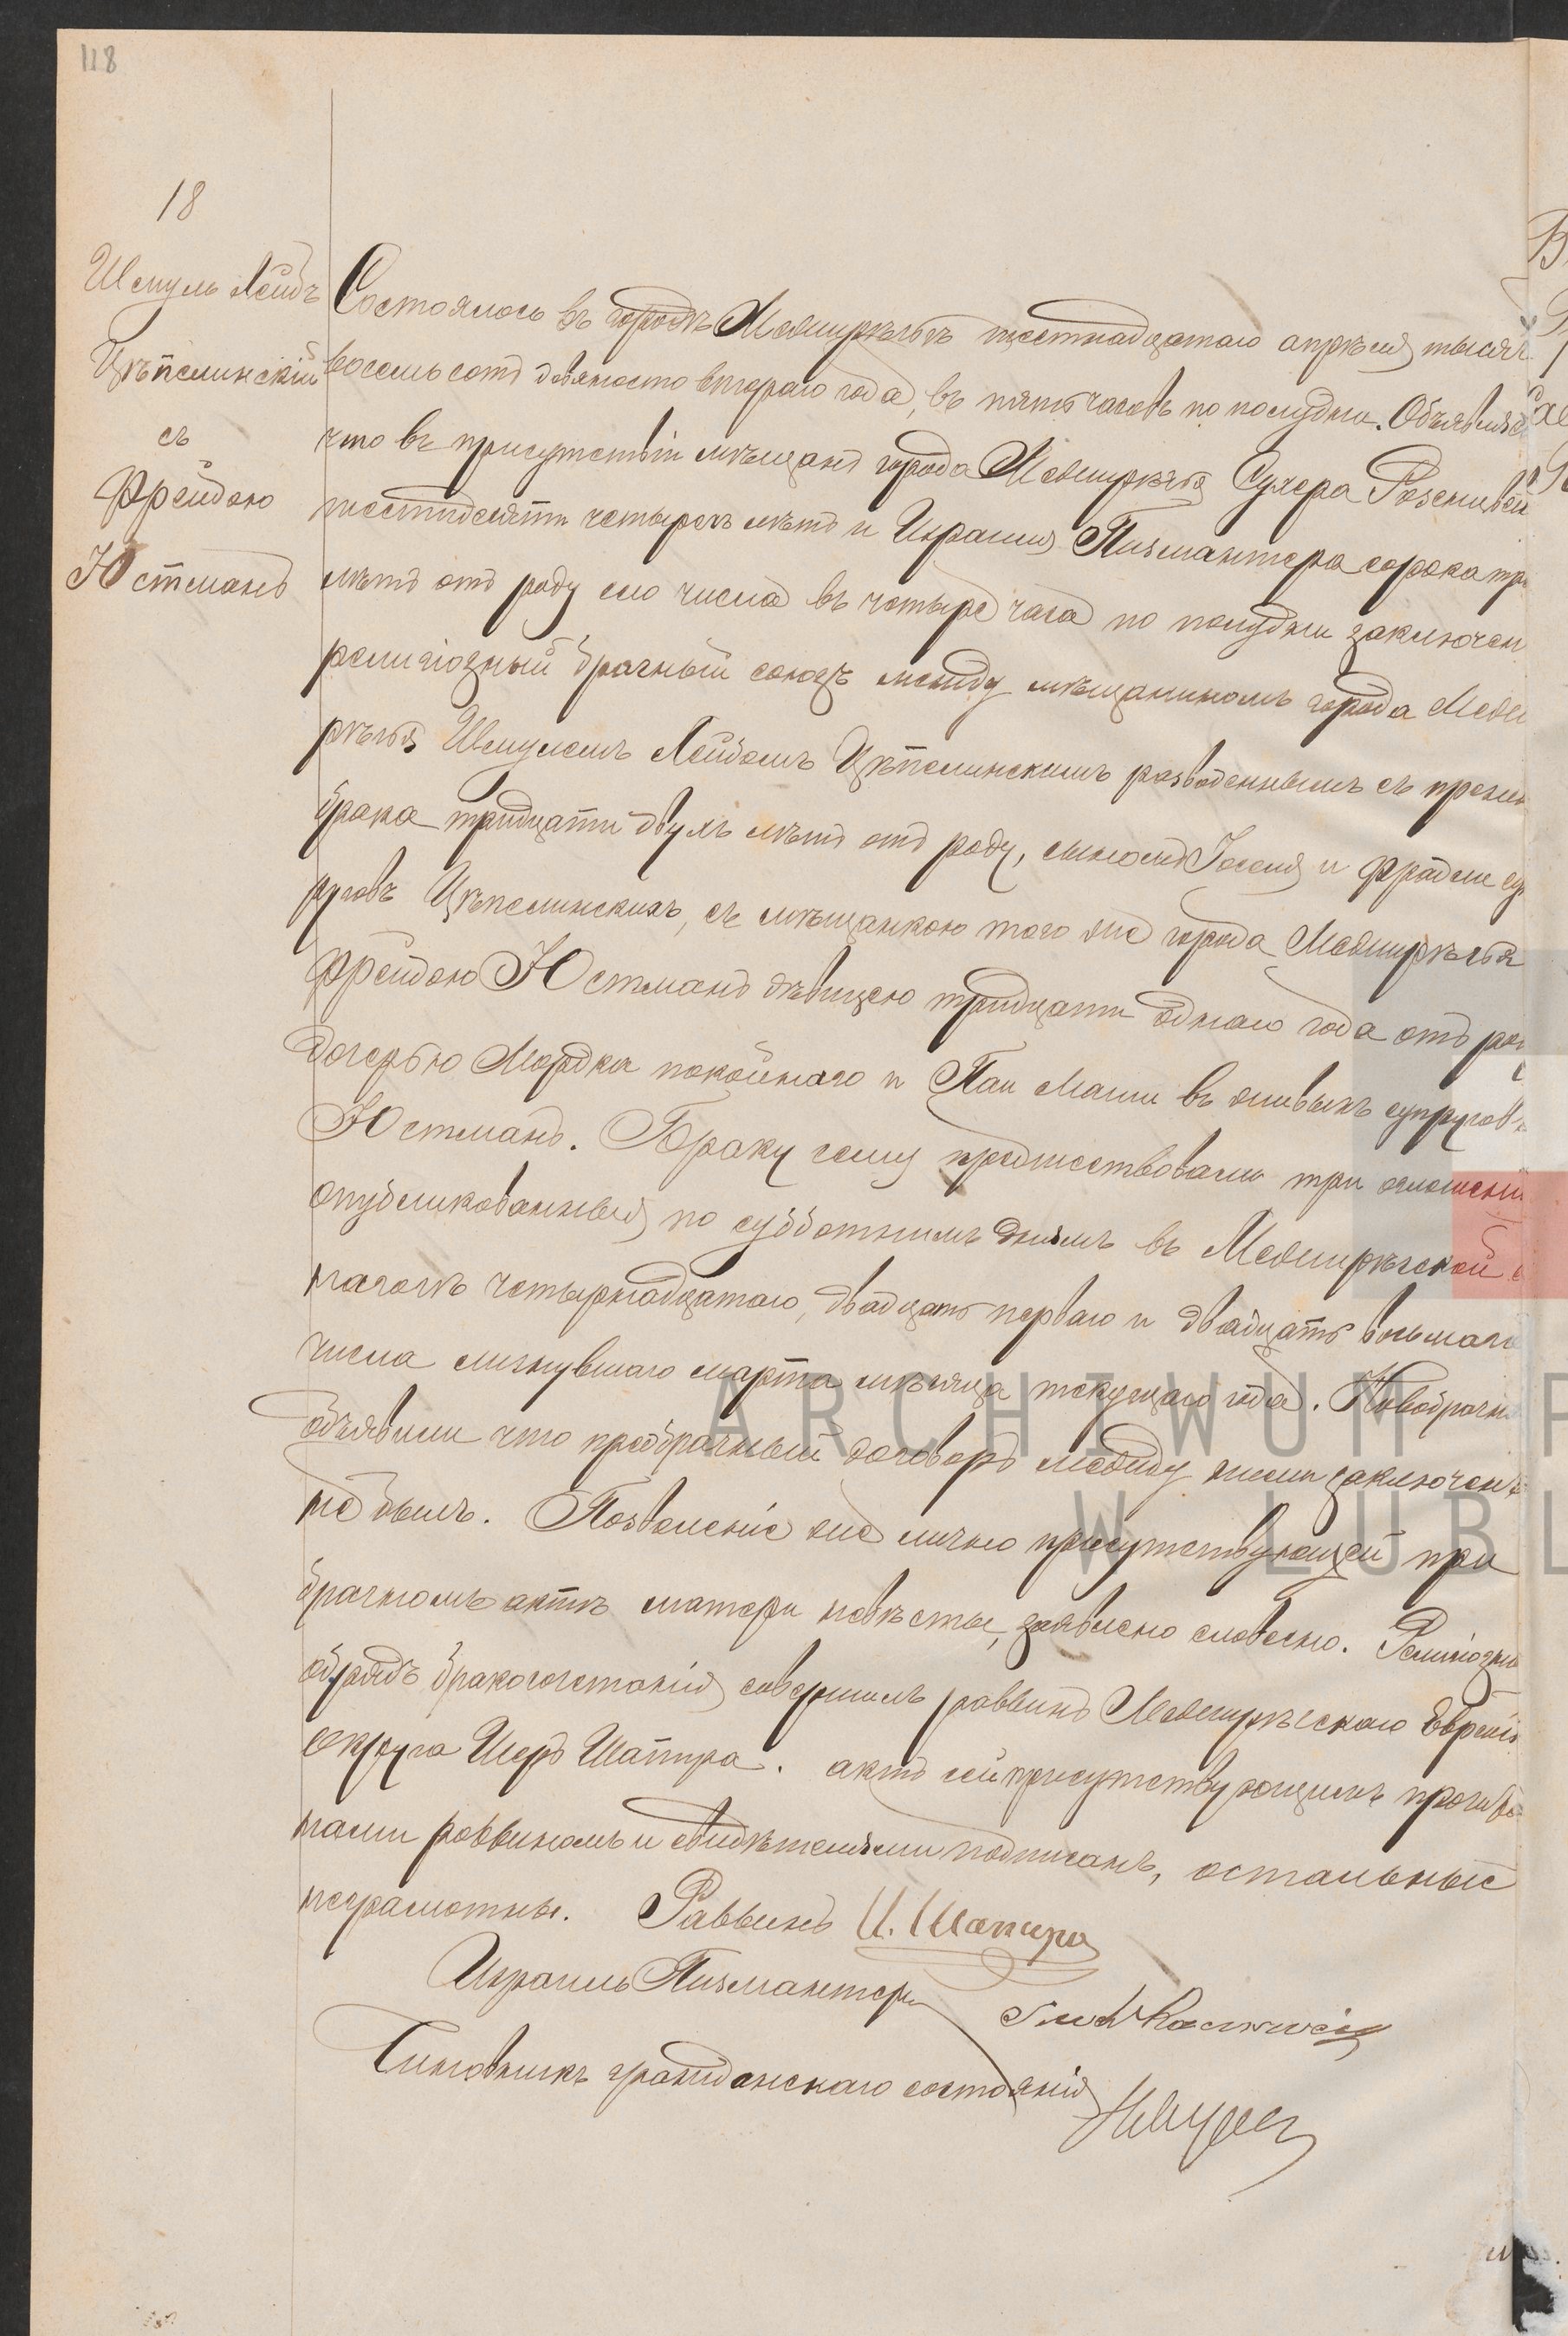 118
18
Шмуль Лейбъ
Цѣпелинскій
съ
Фрейдою
Юстманъ
Состоялось въ городѣ Междирѣчьѣ шестнадцатаго апрѣля тысяч
восемьсотъ девяносто втораго года, въ пять часовъ по полудни. Объявляе
что въ присутствіи мѣщанъ города Междирѣчья Сухера Розенцвей
шестидесяти четырехъ лѣтъ и Израиля Пизмантера сорока тр
лѣтъ отъ роду сего числа въ четыре часа по полудни заключен
религіозный брачный союзъ между мѣщаниномъ города Межи
рѣчья Шмулемъ Лейбомъ Цѣпелинскимъ разведеннымъ съ прежн
брака тридцати двухъ лѣтъ отъ роду, сыномъ Іоселя и Фрадли су
руговъ Цѣпелинскихъ, съ мѣщанкою того же города Междирѣчья
Фрейдою Юстманъ дѣвицею тридцати одного года отъ ро
дочерью Мордка покойнаго и Паи Маши въ живыхъ супруговъ
Юстманъ. Браку сему предшествовали три оглашені
опубликованныя по субботнимъ днямъ въ Междирѣчской с
нагогѣ четырнадцатаго, двадцать перваго и двадцать восьмаго
числа минувшаго марта мѣсяца текущаго года. Новобрачн
объявили что предбрачный договоръ между ними заключенъ
не былъ. Позволеніе же лично присутствующей при
брачномъ актѣ матери невѣсты, заявлено словесно. Религіозны
обрядъ бракосочетанія совершилъ раввинъ Междирѣчскаго Еврейс
округа Шапира. актъ сей присутствующимъ прочита
нами раввиномъ и свидѣтелями подписанъ, остальные
неграмотны. Раввинъ И. Шапира
Израиль Пизмантеръ
Чиновникъ гражданскаго состоянія